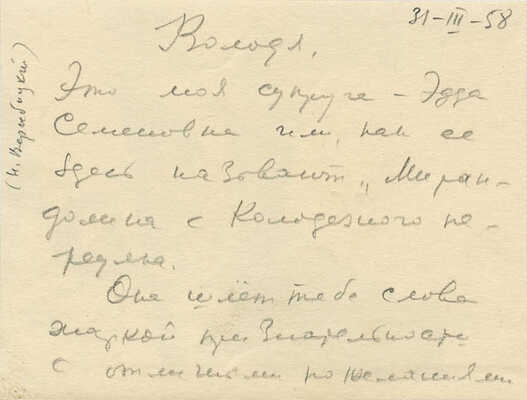 31-III-58
Володя,
Это моя супруга – Эдда
Семеновна или, как ее
здесь называют „Миран-
долина с Колодезного пе-
реулка.
Она шлёт тебе слова
жаркой признательности
с отличными пожеланиями
(Н. Вербицкий)